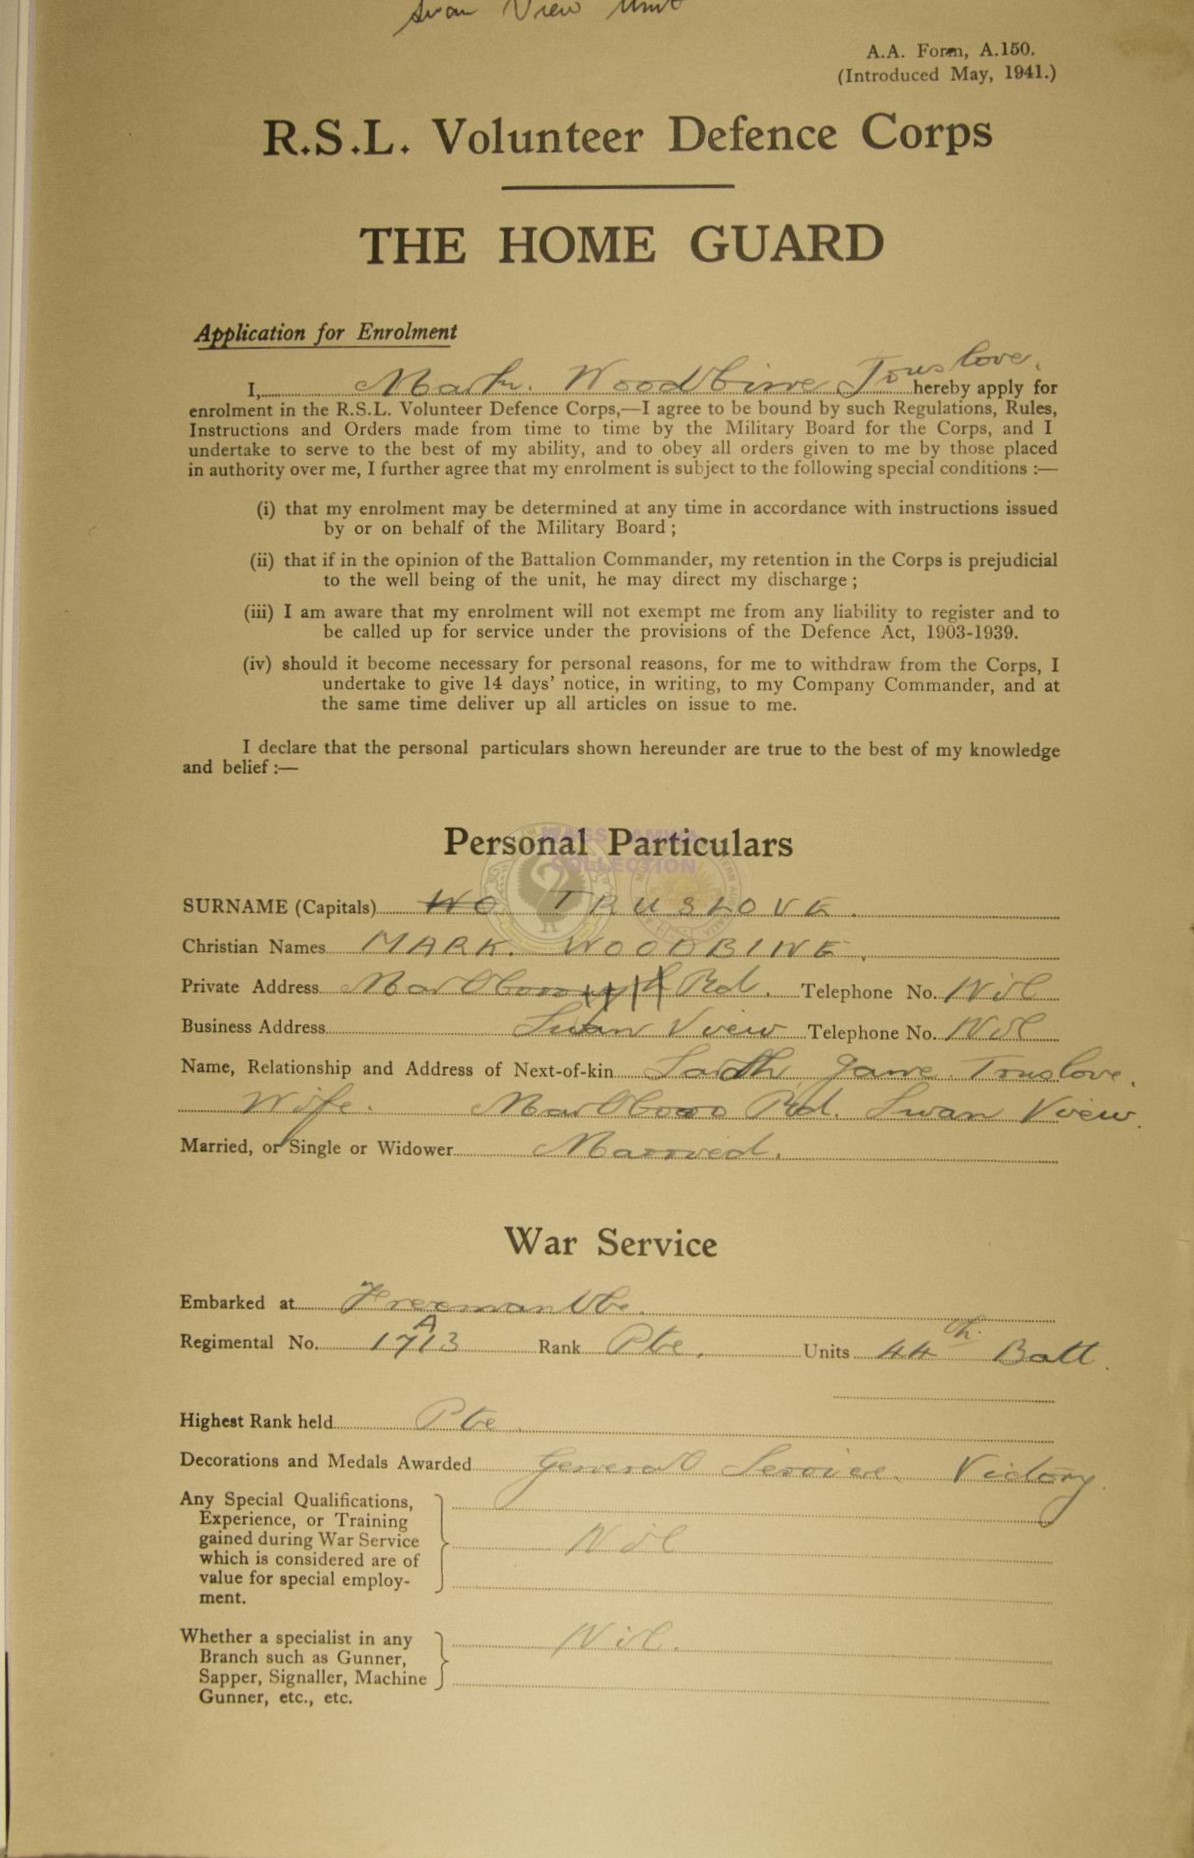 Swan View Unit
A.A. Form, A.150.
(Introduced May, 1941.)
R.S.L. Volunteer Defence Corps
THE HOME GUARD
Application for Enrolment
I, Mark. Woodbine Truslove. hereby apply for
enrolment in the R.S.L. Volunteer Defence Corps,—I agree to be bound by such Regulations, Rules,
Instructions and Orders made from time to time by the Military Board for the Corps, and I
undertake to serve to the best of my ability, and to obey all orders given to me by those placed
in authority over me, I further agree that my enrolment is subject to the following special conditions :—
(i) that my enrolment may be determined at any time in accordance with instructions issued
by or on behalf of the Military Board ;
(ii) that if in the opinion of the Battalion Commander, my retention in the Corps is prejudicial
to the well being of the unit, he may direct my discharge ;
(iii) I am aware that my enrolment will not exempt me from any liability to register and to
be called up for service under the provisions of the Defence Act, 1903-1939.
(iv) should it become necessary for personal reasons, for me to withdraw from the Corps, I
undertake to give 14 days' notice, in writing, to my Company Commander, and at
the same time deliver up all articles on issue to me.
I declare that the personal particulars shown hereunder are true to the best of my knowledge
and belief :—
Personal Particulars
COLLECTION
SURNAME (Capitals) WO TRUSLOVE.
Christian Names MARK. WOODBINE.
Private Address Rd. Telephone No. Nil
Business Address Swan View Telephone No. Nil
Name, Relationship and Address of Next-of-kin Jane Truslove.
Wife. Marlboro Rd. Swan View.
Married, or Single or Widower Married.
War Service
Embarked at Freemantle.
Regimental No. 1713 A Rank Pte. Units 44th. Batt.
Highest Rank held Pte.
Decorations and Medals Awarded General Service. Victory.
Any Special Qualifications,
Experience, or Training
gained during War Service
which is considered are of
value for special employ-
ment.
Nil
Whether a specialist in any
Branch such as Gunner,
Sapper, Signaller, Machine
Gunner, etc., etc.
Nil.